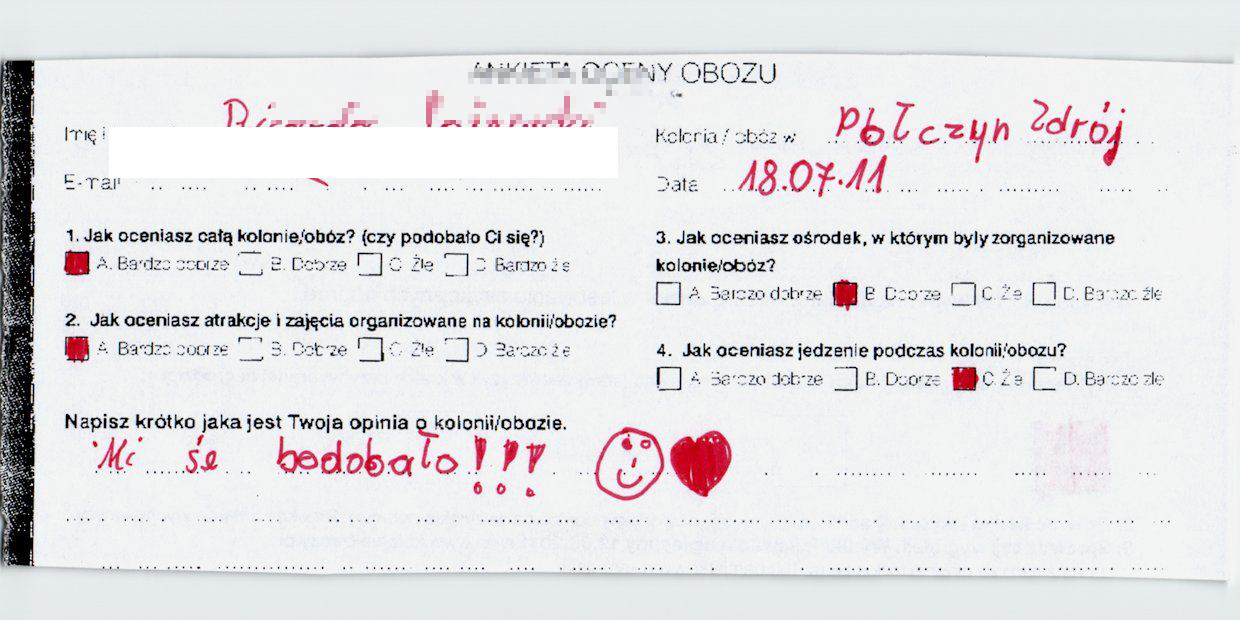 ANKIETA OCENY OBOZU
Imię i
Kolonia / obóz w Połczyn Zdrój
E-mail
Data 18.07.11
1. Jak oceniasz całą kolonie/obóz? (czy podobało Ci się?)
A. Bardzo dobrze B. Dobrze C. Źle D. Bardzo źle
2. Jak oceniasz atrakcje i zajęcia organizowane na kolonii/obozie?
A. Bardzo dobrze B. Dobrze C. Źle D. Bardzo źle
3. Jak oceniasz ośrodek, w którym były zorganizowane
kolonie/obóz?
A. Bardzo dobrze B. Dobrze C. Źle D. Bardzo źle
4. Jak oceniasz jedzenie podczas kolonii/obozu?
A. Bardzo dobrze B. Dobrze C. Źle D. Bardzo źle
Napisz krótko jaka jest Twoja opinia o kolonii/obozie.
Mi śe bodobało!!!